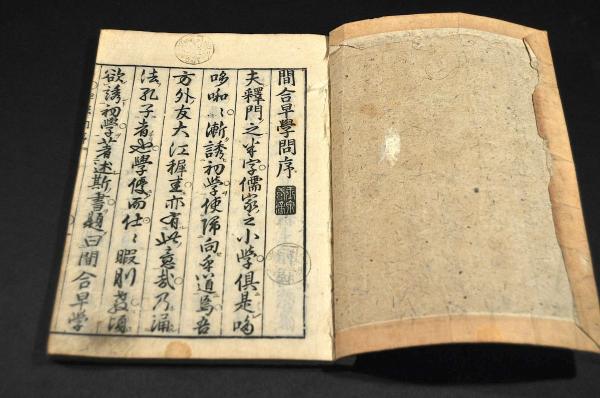 間合早學問序
夫釋門之半字儒家之小學俱是哆
哆啝〻漸誘初學使歸向乎道焉吾
方外友大江穉圭亦有此意哉乃誦
法孔子者也學優而仕〻暇則教誨
欲誘初學著述斯書題曰間合早學